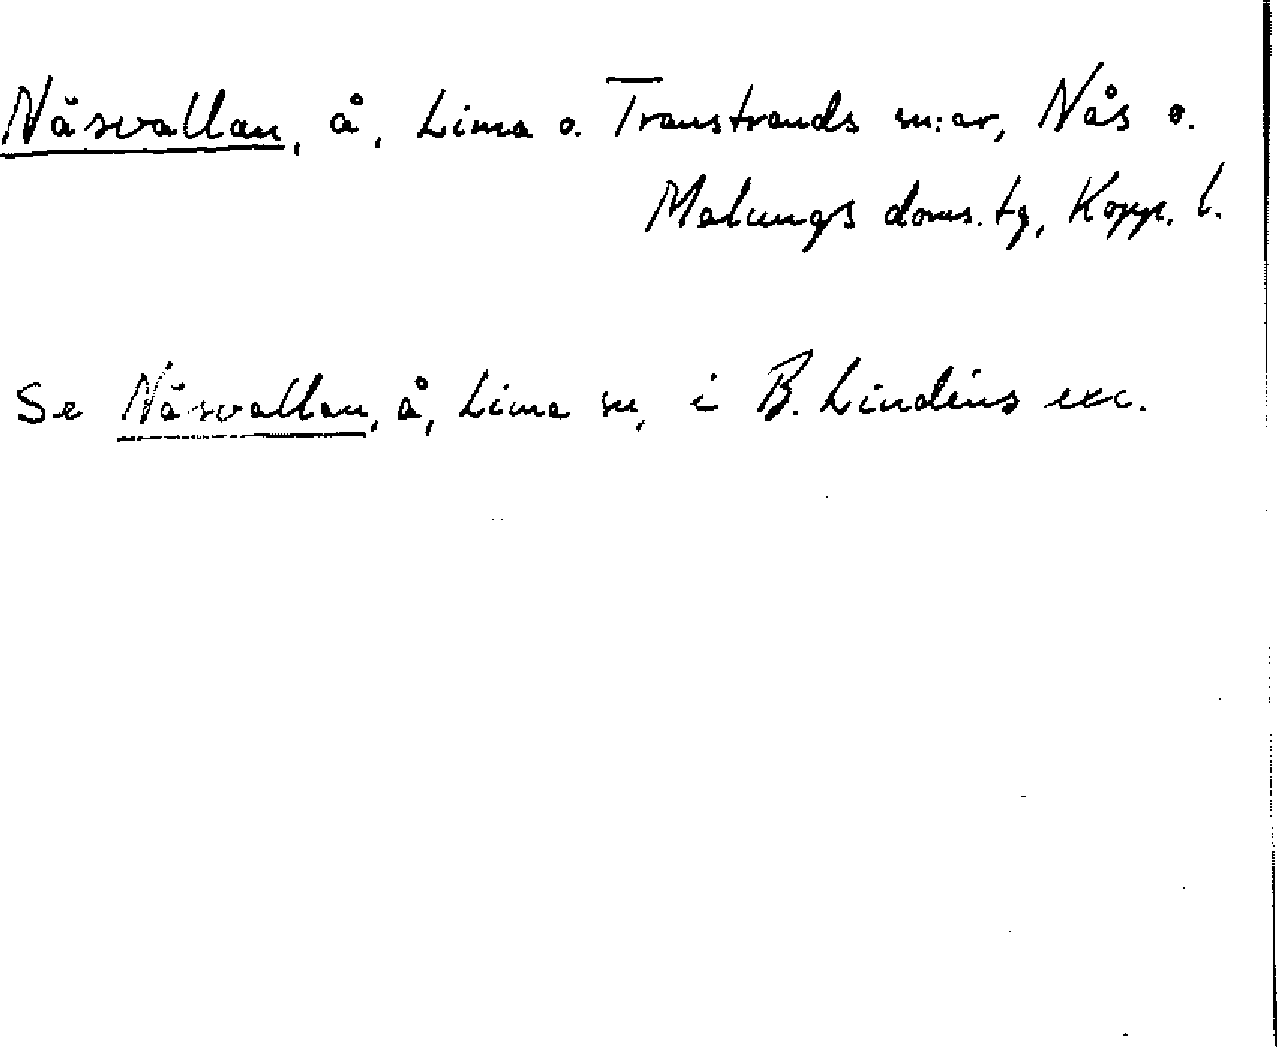 Näsvallan, å, Lima o. Transtrands sn:ar, Nås o.
Malungs doms. tg, Kopp. l.
Se Näsvallan, å, Lima sn, i B. Lindéns exc.